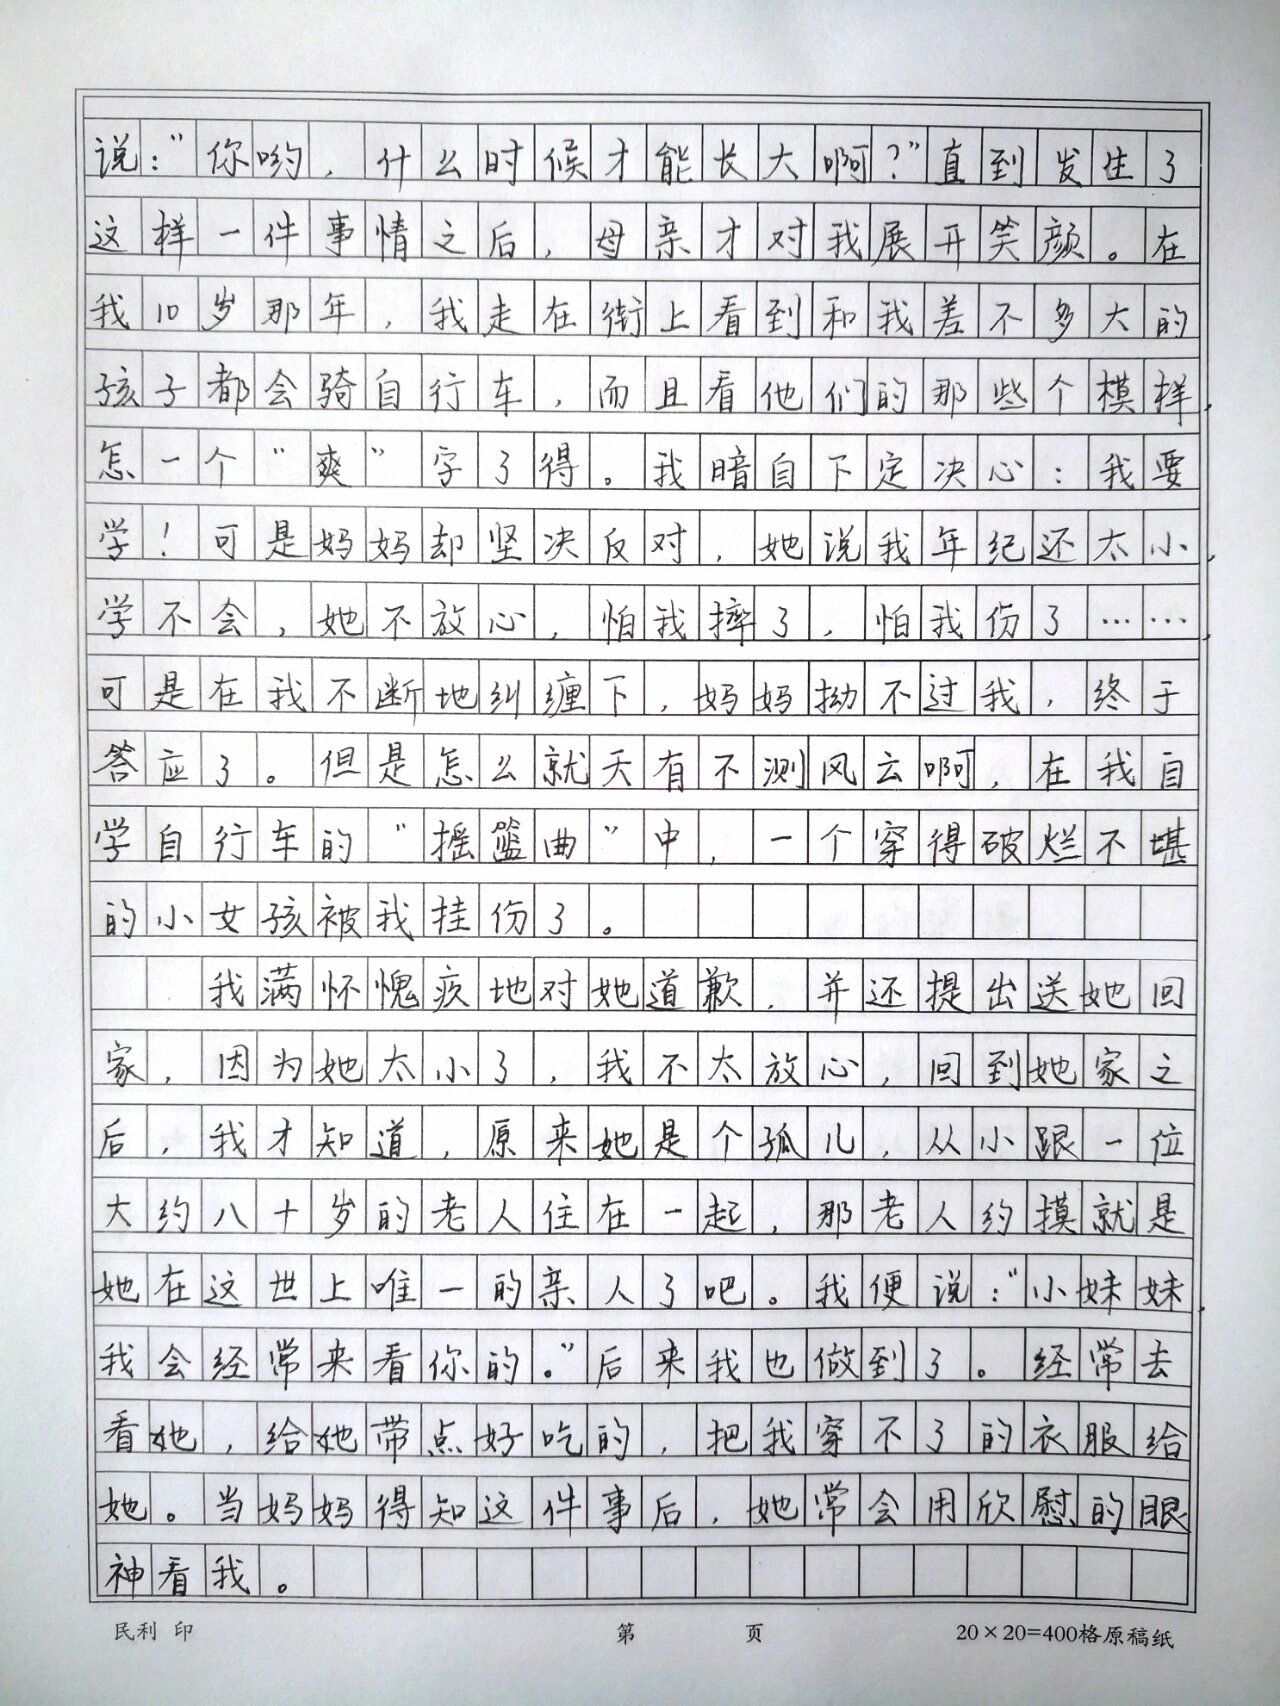 说：“你哟，什么时候才能长大啊？”直到发生了
这样一件事情之后，母亲才对我展开笑颜。在
我10岁那年，我走在街上看到和我差不多大的
孩子都会骑自行车，而且看他们的那些个模样，
怎一个“爽”字了得。我暗自下定决心：我要
学！可是妈妈却坚决反对，她说我年纪还太小，
学不会，她不放心，怕我摔了，怕我伤了……，
可是在我不断地纠缠下，妈妈拗不过我，终于
答应了。但是怎么就天有不测风云啊，在我自
学自行车的“摇篮曲”中，一个穿得破烂不堪
的小女孩被我挂伤了。
我满怀愧疚地对她道歉，并还提出送她回
家，因为她太小了，我不太放心，回到她家之
后，我才知道，原来她是个孤儿，从小跟一位
大约八十岁的老人住在一起，那老人约摸就是
她在这世上唯一的亲人了吧。我便说：“小妹妹，
我会经常来看你的。”后来我也做到了。经常去
看她，给她带点好吃的，把我穿不了的衣服给
她。当妈妈得知这件事后，她常会用欣慰的眼
神看我。
民利 印 第 页 20×20=400格原稿纸